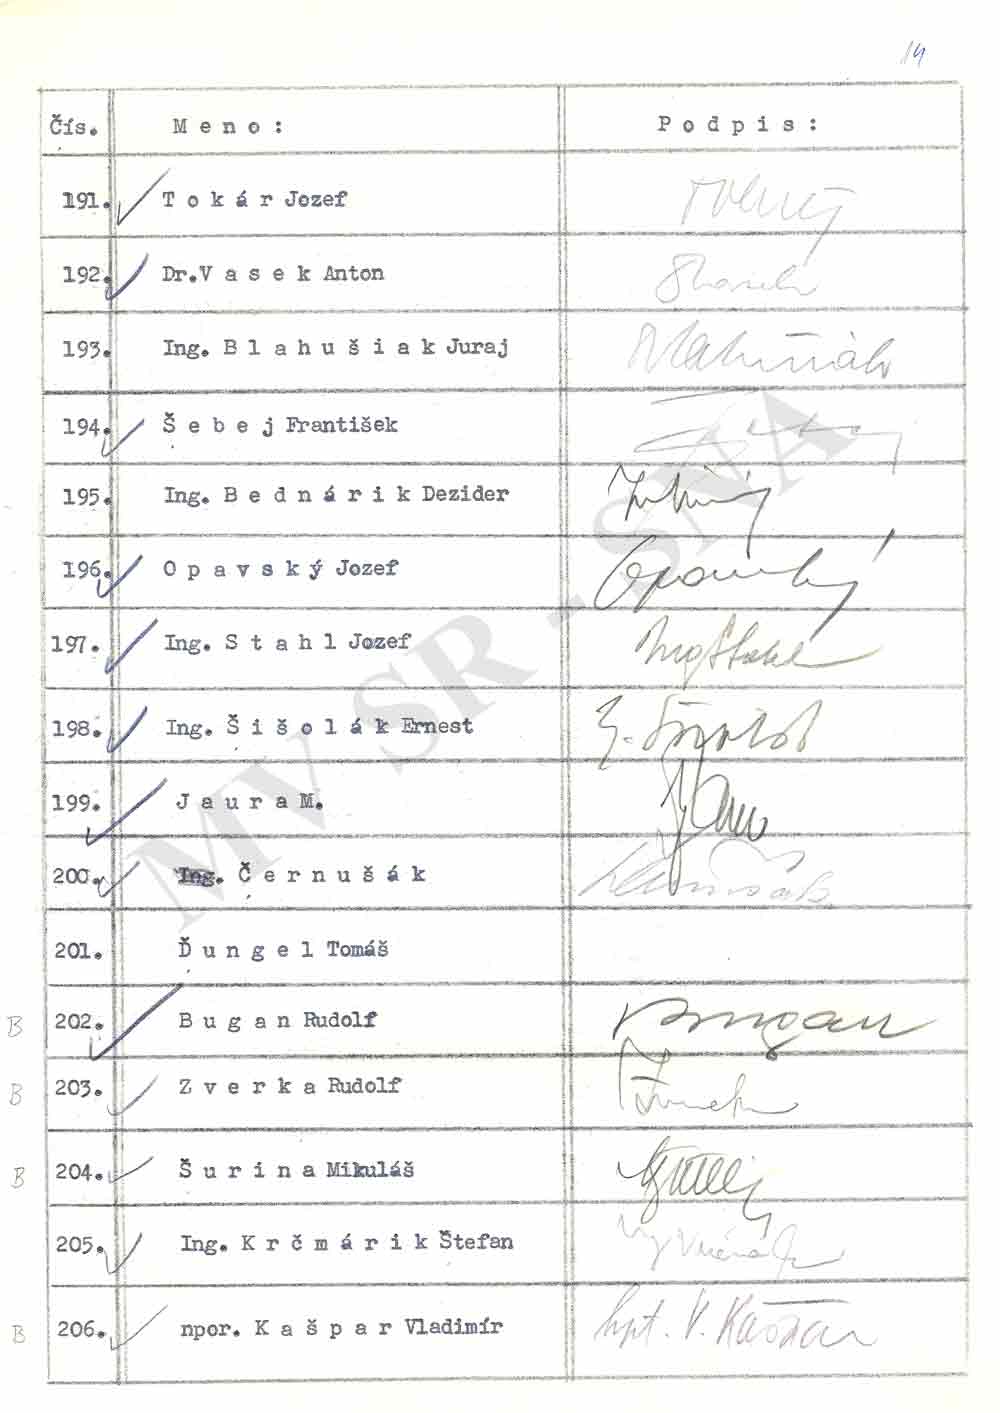 14
Čís. Meno: Podpis:
191. Tokár Jozef
192. Dr. Vasek Anton
193. Ing. Blahušiak Juraj
194. Šebej František
195. Ing. Bednárik Dezider
196. Opavský Jozef Opavský
197. Ing. Stahl Jozef Ing Stahl
198. Ing. Šišolák Ernest
199. Jaura M.
200. Ing. Černušák
201. Ďungel Tomáš
B 202. Bugan Rudolf Bugan
B 203. Zverka Rudolf
B 204. Šurina Mikuláš
205. Ing. Krčmárik Štefan
B 206. npor. Kašpar Vladimír npt. V. Kašpar
MV SR - SNA